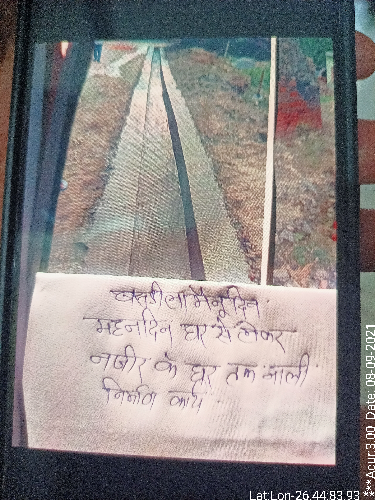 मदनदिन घर से लेकर
नजीर के घर तक नाली
निर्माण कार्य
Lat:Lon-26.44:83.93
***Acur:3.00 Date: 08-09-2021